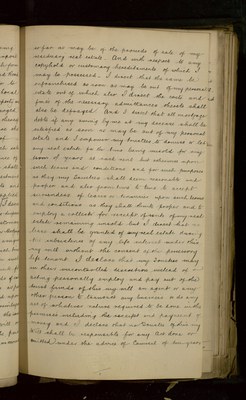 so far as may be of the proceeds of sale of my
residuary real estate. And with respect to any
copyhold or customary hereditaments of which I
may be possessed. I direct that the same be
enfranchised as soon as may be out of my personal
estate out of which also I direct the costs and
fines of the necessary admittances thereto shall
also be defrayed. And I direct that all mortgage
debts of any owing by me at my decease shall be
satisfied as soon as may be out of my personal
estate and I empower my trustees to demise or let
any real estate for the time being unsold for any
term of years at rack rent but otherwise upon
such terms and conditions and for such purposes
as they my trustees shall deem reasonable and
proper and also from time to time to accept
surrenders of leases or tenancies upon such terms
and conditions as they shall think proper and to
employ a collector for receipt of rents of my real
estate remaining unsold but I direct that no
lease shall be granted of any real estate during
the subsistence of any life interest under this
my will without the consent of the
life tenant. I declare that my trustees may
in their uncontrolled discretion instead of
acting personally employ and pay out of the
trust funds of this my will an agent or any
other person to transact any business or do any
act of whatever nature required to be done in the
premises including the receipt and payment of
money and I declare that no trustee of this my
Will shall be responsible for any act done or
omitted under the advice of Counsel of ten years